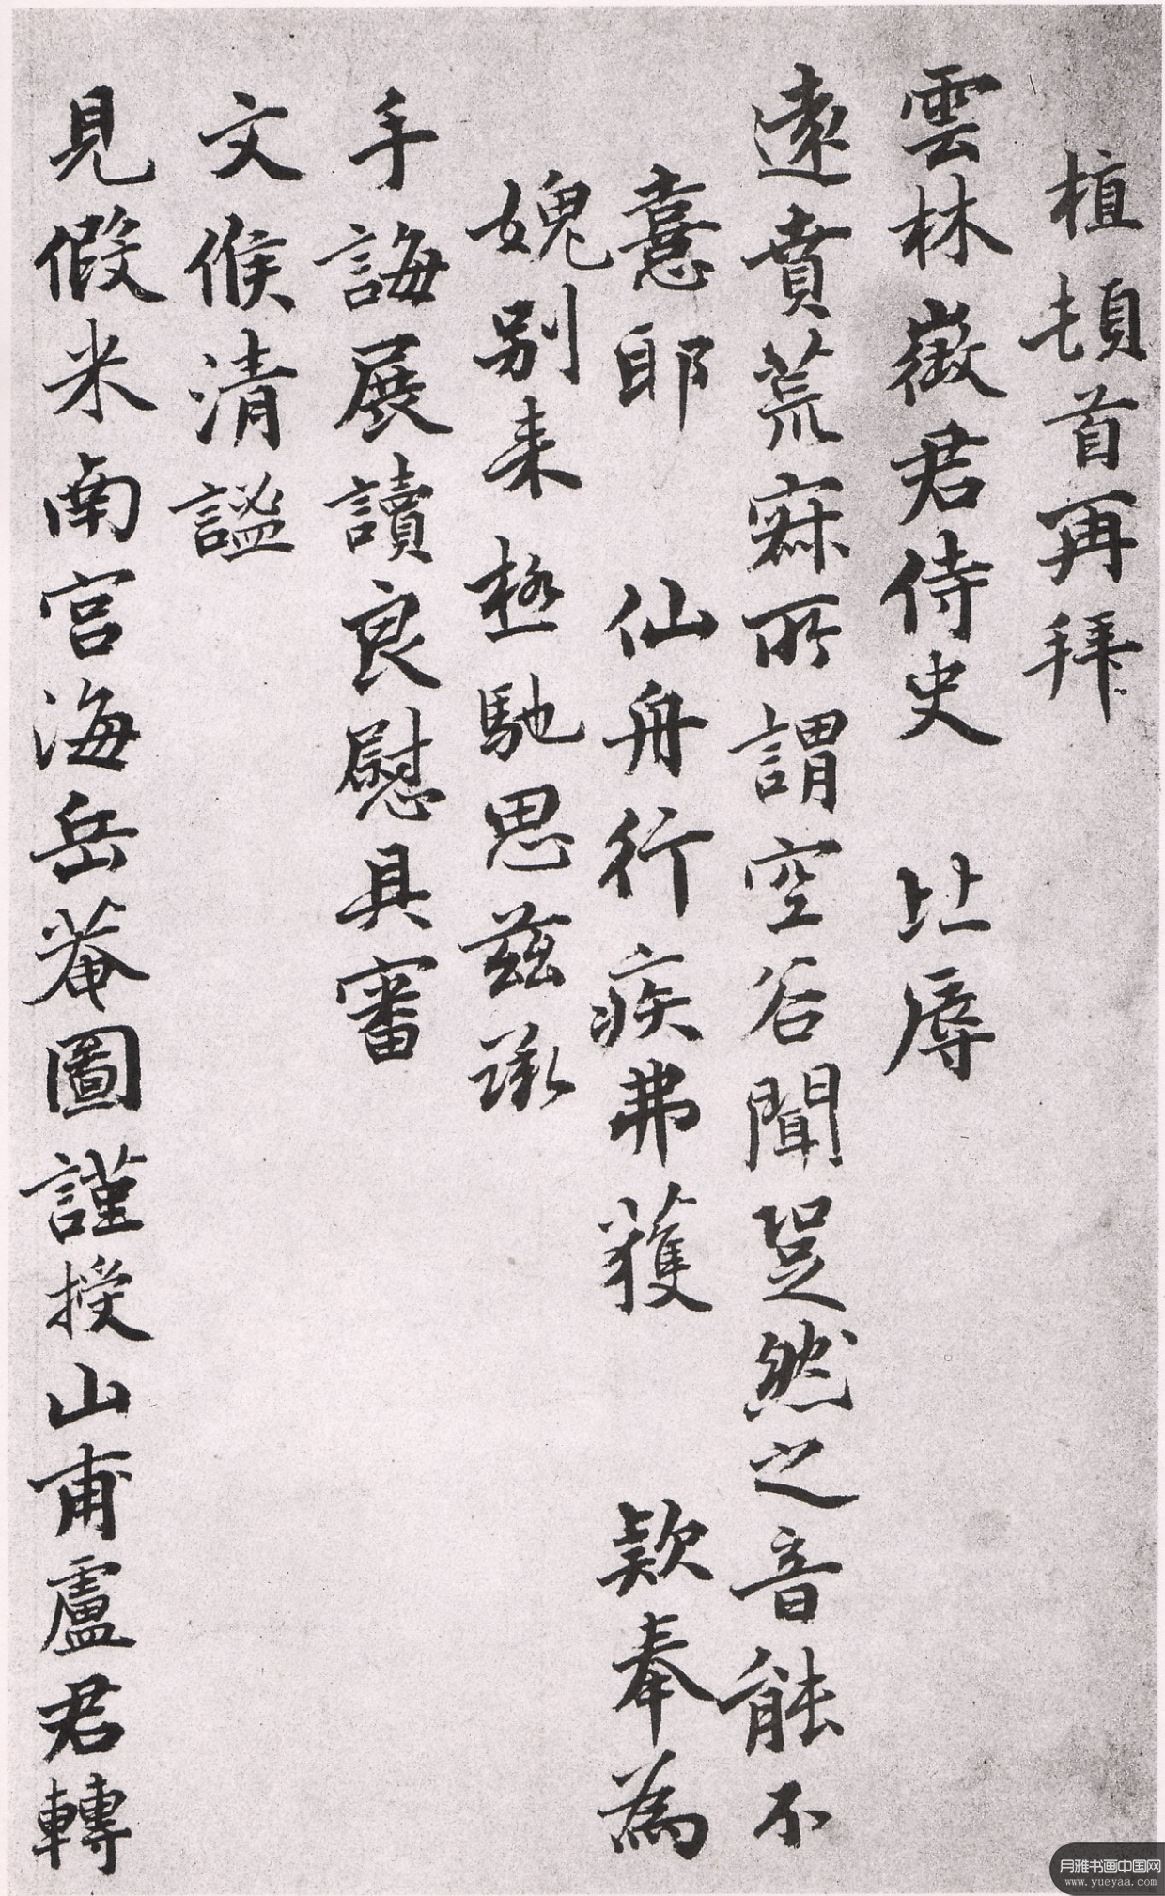 植頓首再拜
雲林徵君侍史 比辱
遠賁荒寂所謂空谷聞跫然之音能不
憙耶 仙舟行疾弗獲 欵奉為
媿別来極馳思茲承
手誨展讀良慰具審
文候清謐
見假米南宮海岳菴圖謹授山甫盧君轉
月雅书画中国网
www.yueyaa.com